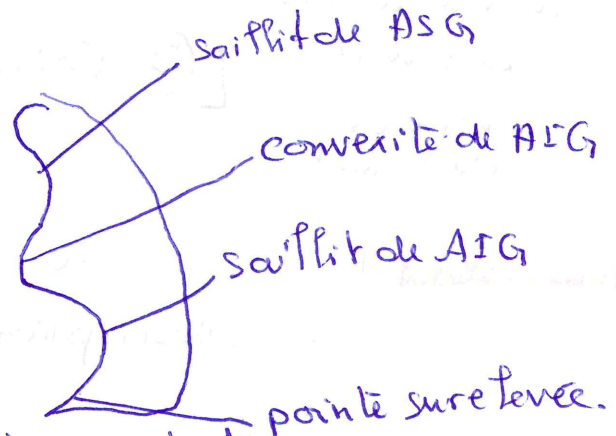 saillit de ASG
convexité de AIG
saillit de AIG
pointe surelevée.